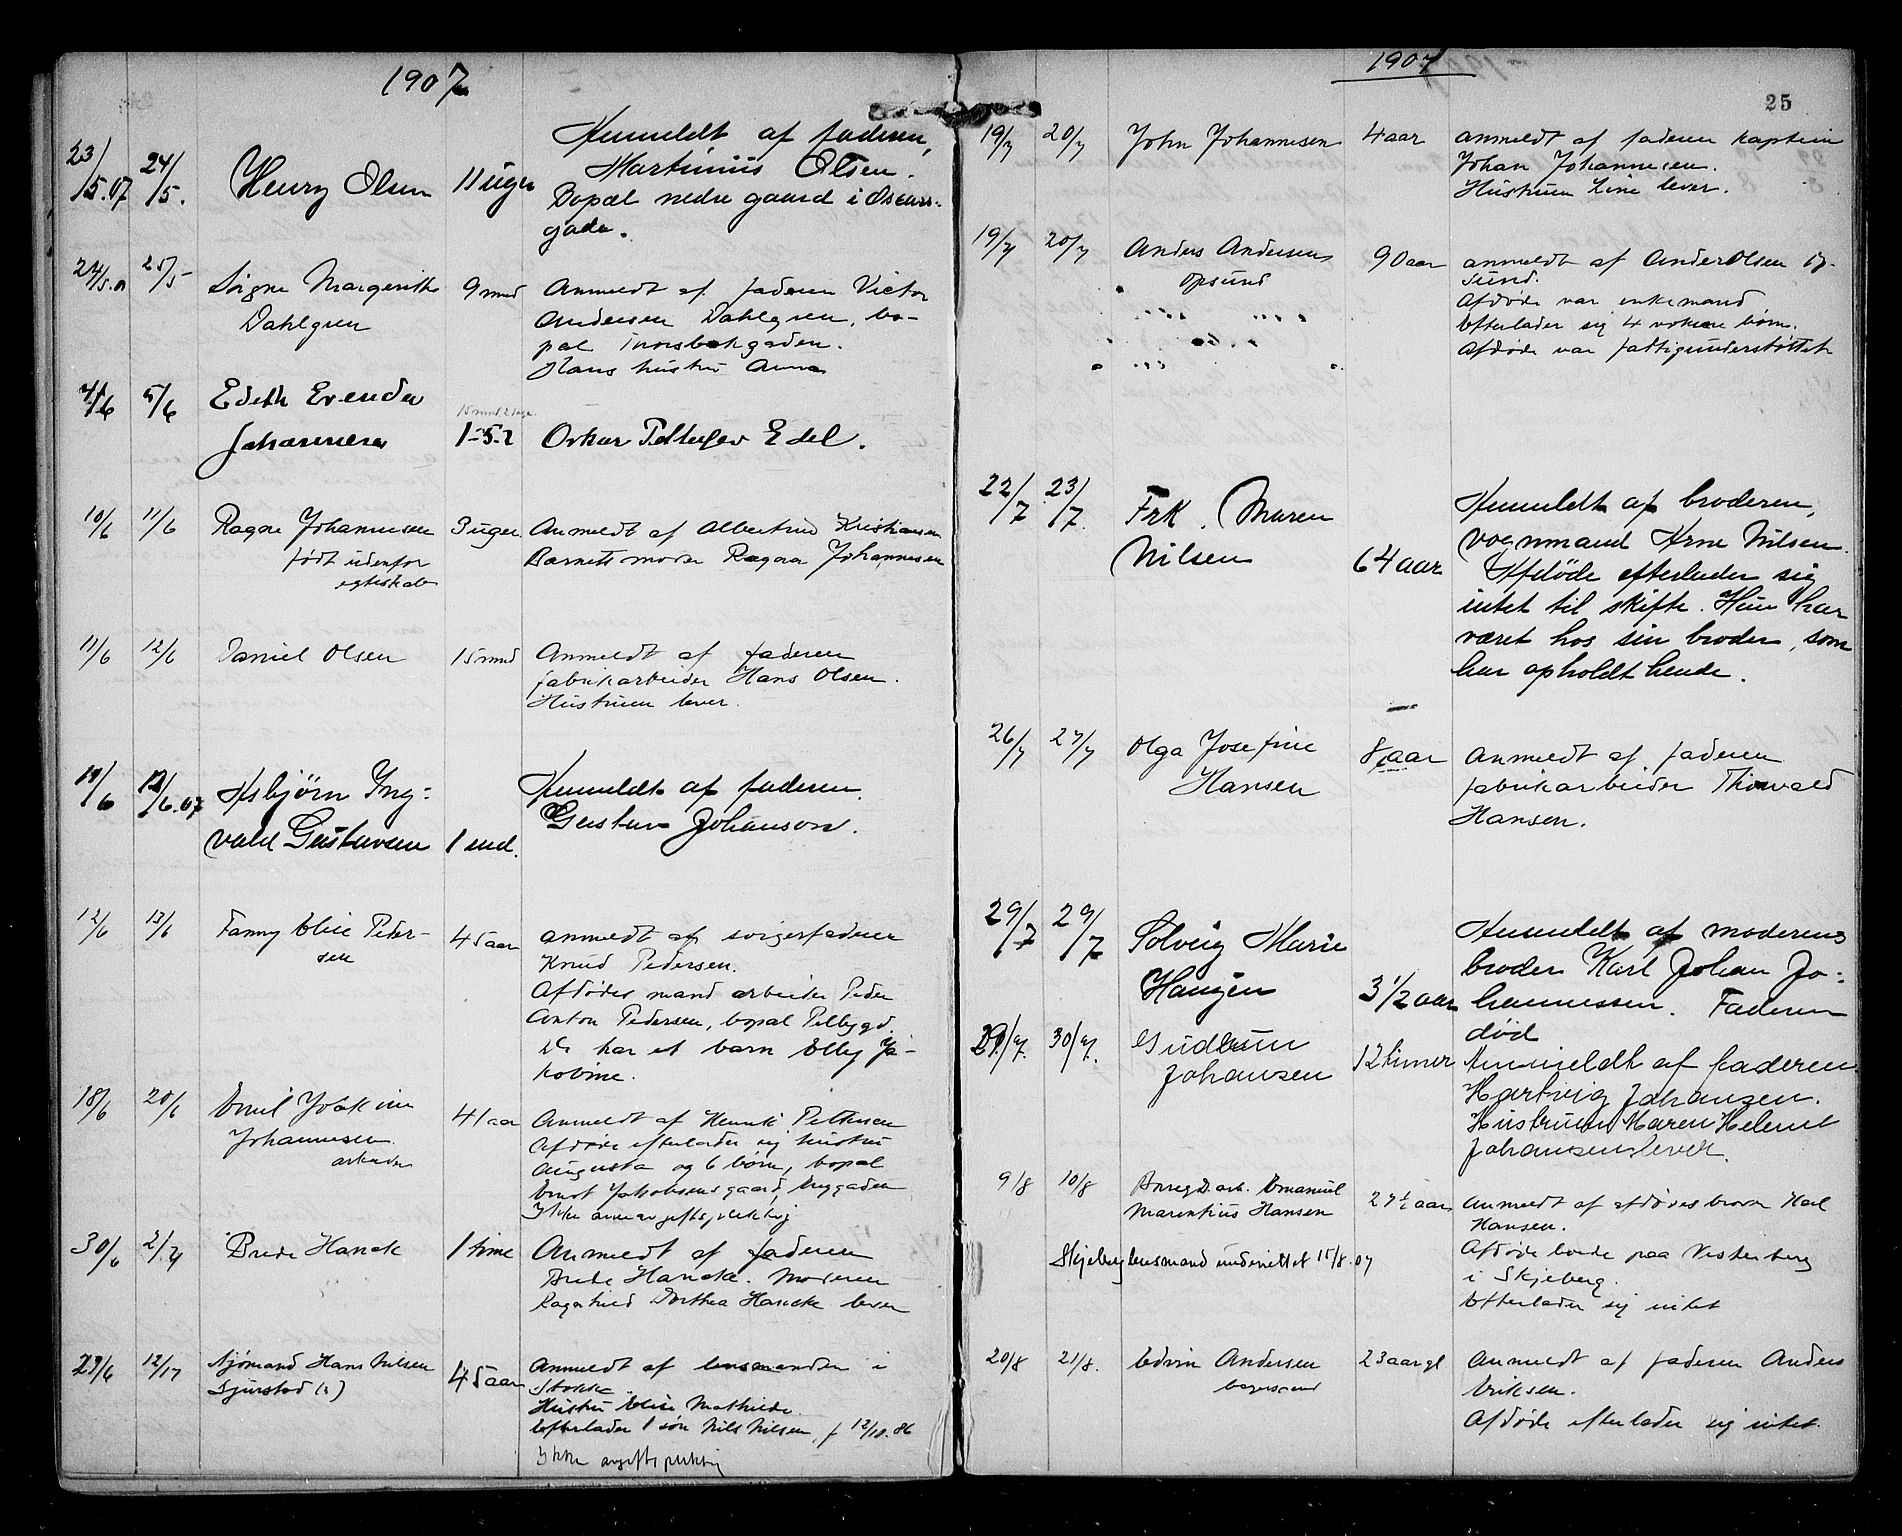 1907
23/5.07 24/5. Henry Olsen 11 uger Anmeldt af faderen,
Martinius Olsen.
Bopæl nedre gaard i Oscars-
gade.
24/5.07 25/5 Signe Margrethe 9 mnd Anmeldt af faderen Victor
Dahlgren Andersen Dahlgren, bo-
pæl
Hans hustru Anna
4/6 5/6 Edith Evenda
15 mnd 2 dage
Johannesen 1-5-2 Oskar Edel.
10/6 11/6 Ragna Johannesen 3 uger Anmeldt af Albertine Kristiansen
født udenfor Barnets moder Ragna Johannesen
egteskab
11/6 12/6 Daniel Olsen 15 mnd Anmeldt af faderen
fabrikarbeider Hans Olsen.
Hustruen lever.
11/6 12/6.07 Asbjørn Ing- Anmeldt af faderen
vald Gustavsen 1 md. Gustav Johanson.
12/6 13/6 Fanny Elise Peder- 45 aar anmeldt af svigerfaderen
sen Knud Pedersen.
Afdødes mand arbeider Peder
Anton Pedersen, bopæl
De har et barn Elly Ja-
kobine.
18/6 20/6 Emil Joakim 41 aar Anmeldt af Henrik Pettersen
Johannesen. Afdøde efterlader sig hustru
arbeider Augusta og 6 børn, bopæl
Ernst Jakobsens gaard,
Ikke
30/6 2/7 Brede Hancke 1 time Anmeldt af faderen
Brede Hancke. Moderen
Ragnhild Dorthea Hancke lever
29/6 12/17 Sjømand Hans Nilsen 45 aar Anmeldt af lensmanden i
Stokke
Hustru Elise Mathilde.
Efterlader 1 søn Nils Nilsen, f 12/10.86
Ikke avgiftspliktig
1907
25
19/7 20/7 John Johannesen 4 aar anmeldt af faderen kaptein
Johan Johannesen.
Hustruen Line lever.
19/7 20/7 Anders Andersen 90 aar anmeldt af Ander Olsen Op-
Opsund sund.
Afdøde var enkemand
Efterlader sig 4 voksne børn.
Afdøde var fattigunderstøttet
22/7 23/7. Frk. Maren Anmeldt af broderen,
Nilsen 64 aar vognmand Arne Nilsen.
Afdøde efterlader sig
intet til skifte. Hun har
været hos sin broder, som
har opholdt hende.
26/7 27/7 Olga Josefine 8 aar Anmeldt af faderen
Hansen fabrikarbeider Thorvald
Hansen.
29/7 29/7 Solveig Marie Anmeldt af moderens
Haugen 3 1/2 aar broder Karl Johan Jo-
hannessen. Faderen
død
29/7. 30/7. Gudrun 12 timer Anmeldt af faderen
Johansen Hartvig Johansen.
Hustruen Maren Helene
Johansen lever.
9/8 10/8 Emanuel 27 1/2 aar Anmeldt af afdødes broder Karl
Marentius Hansen Hansen.
Skjeberg lensmand underrettet 15/8.07 Afdøde boede paa Vesterberg
i Skjeberg.
Efterlader sig intet
20/8 21/8. Edvin Andersen 23 aar gl Anmeldt af faderen Anders
Eriksen.
Afdøde efterlader sig intet.